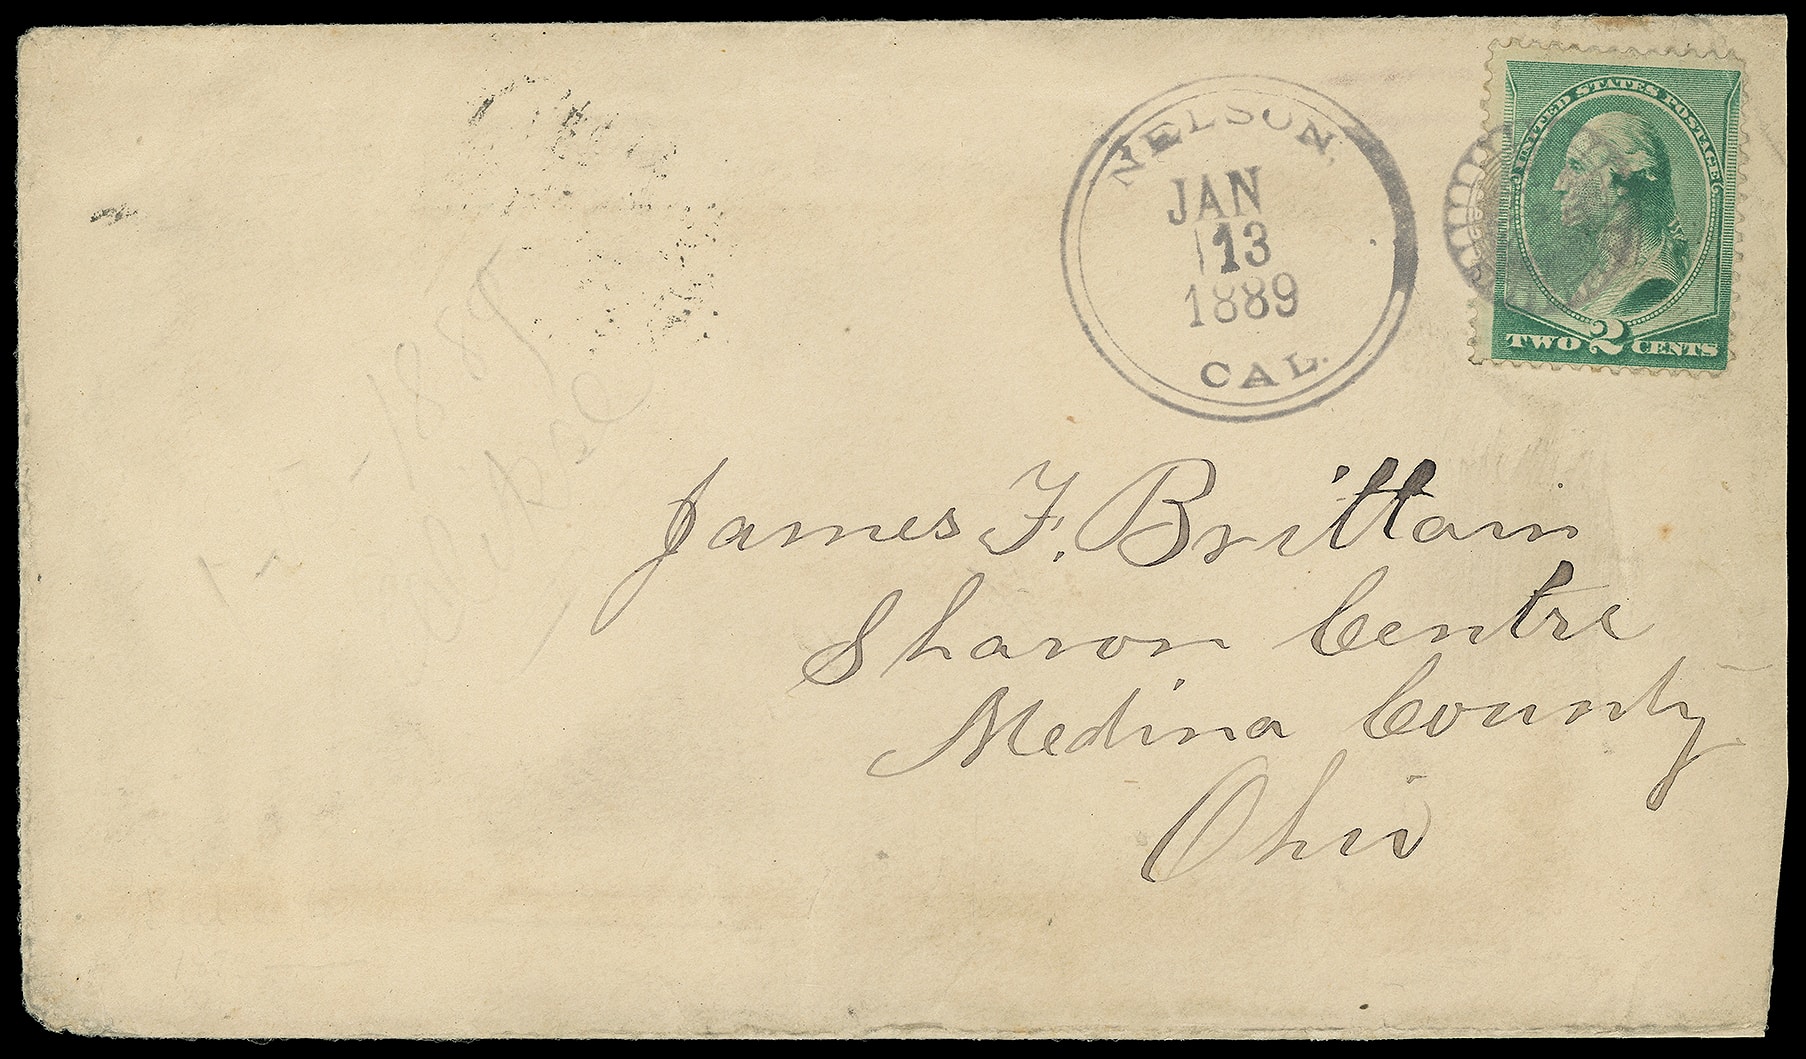 UNITED STATES POSTAGE
TWO 2 CENTS
NELSON,
JAN
13
1889
CAL.
James F. Brittain
Sharon Centre
Medina County
Ohio